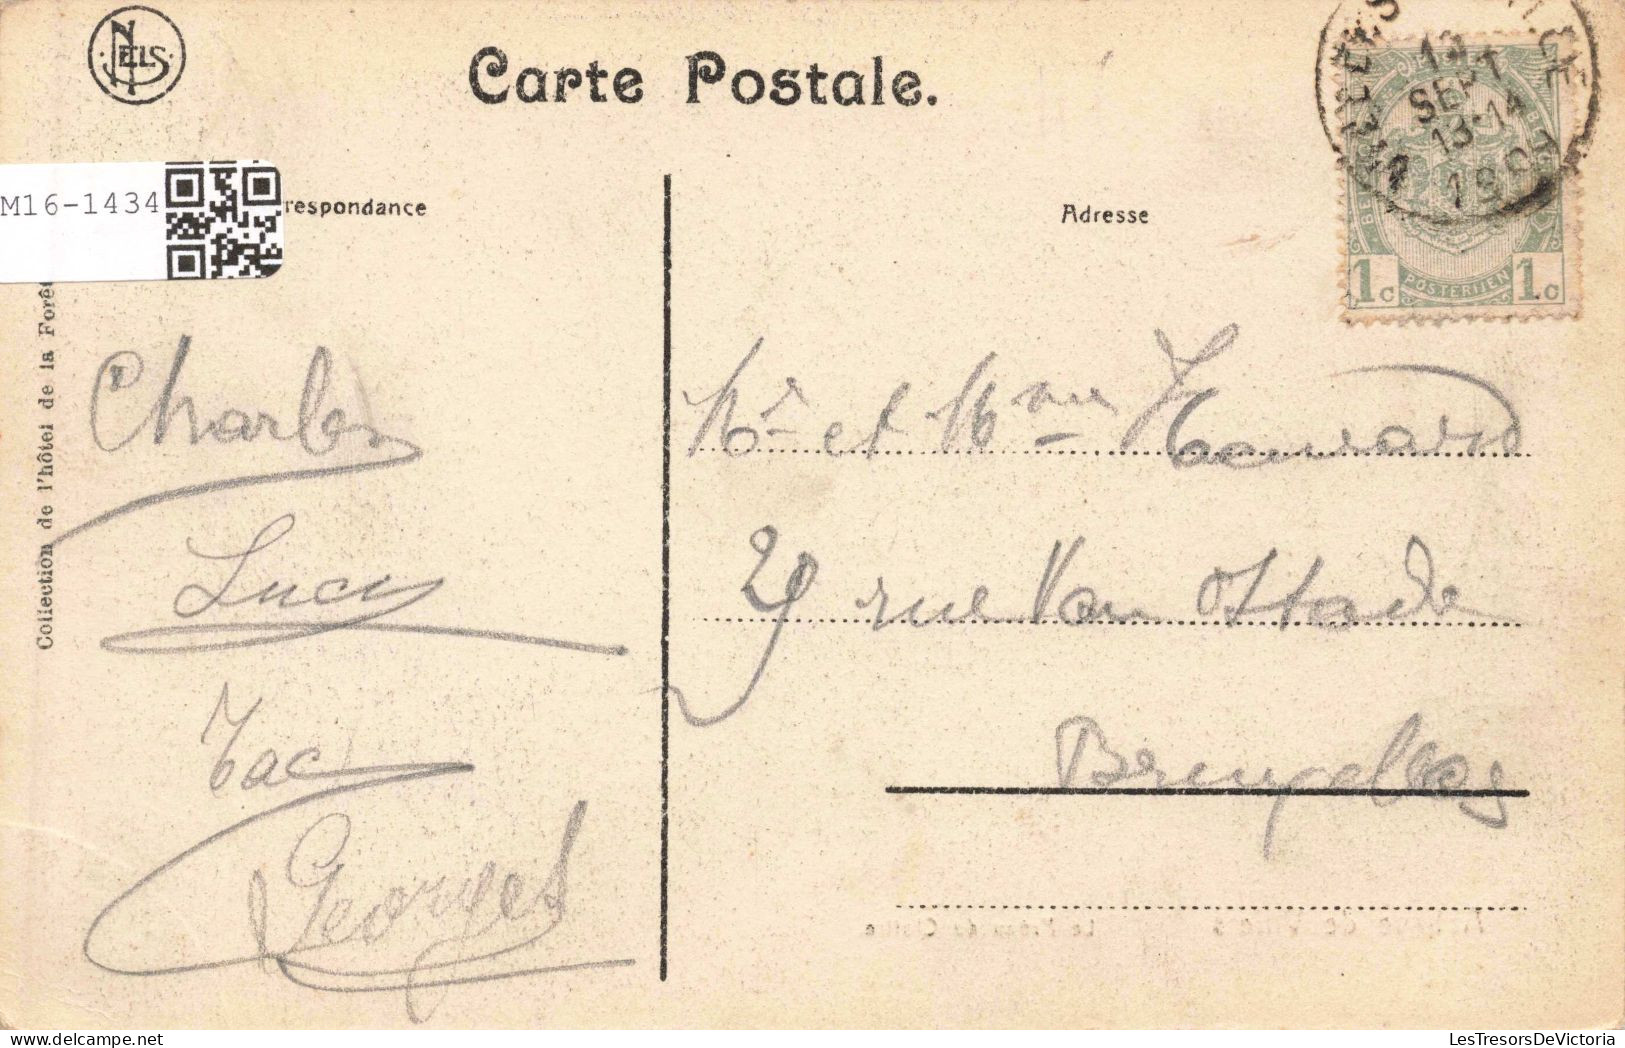 NELS
Carte Postale.
M16-1434
respondance
Adresse
12
SEPT
13-14
POSTERIJEN
1c 1c
Collection de l'hôtel de la Forêt
Charles
Lucy
Georges
Mr et Mme
29 rue Van Ostade
Bruxelles
Le Préau du Cloître
LesTresorsDeVictoria